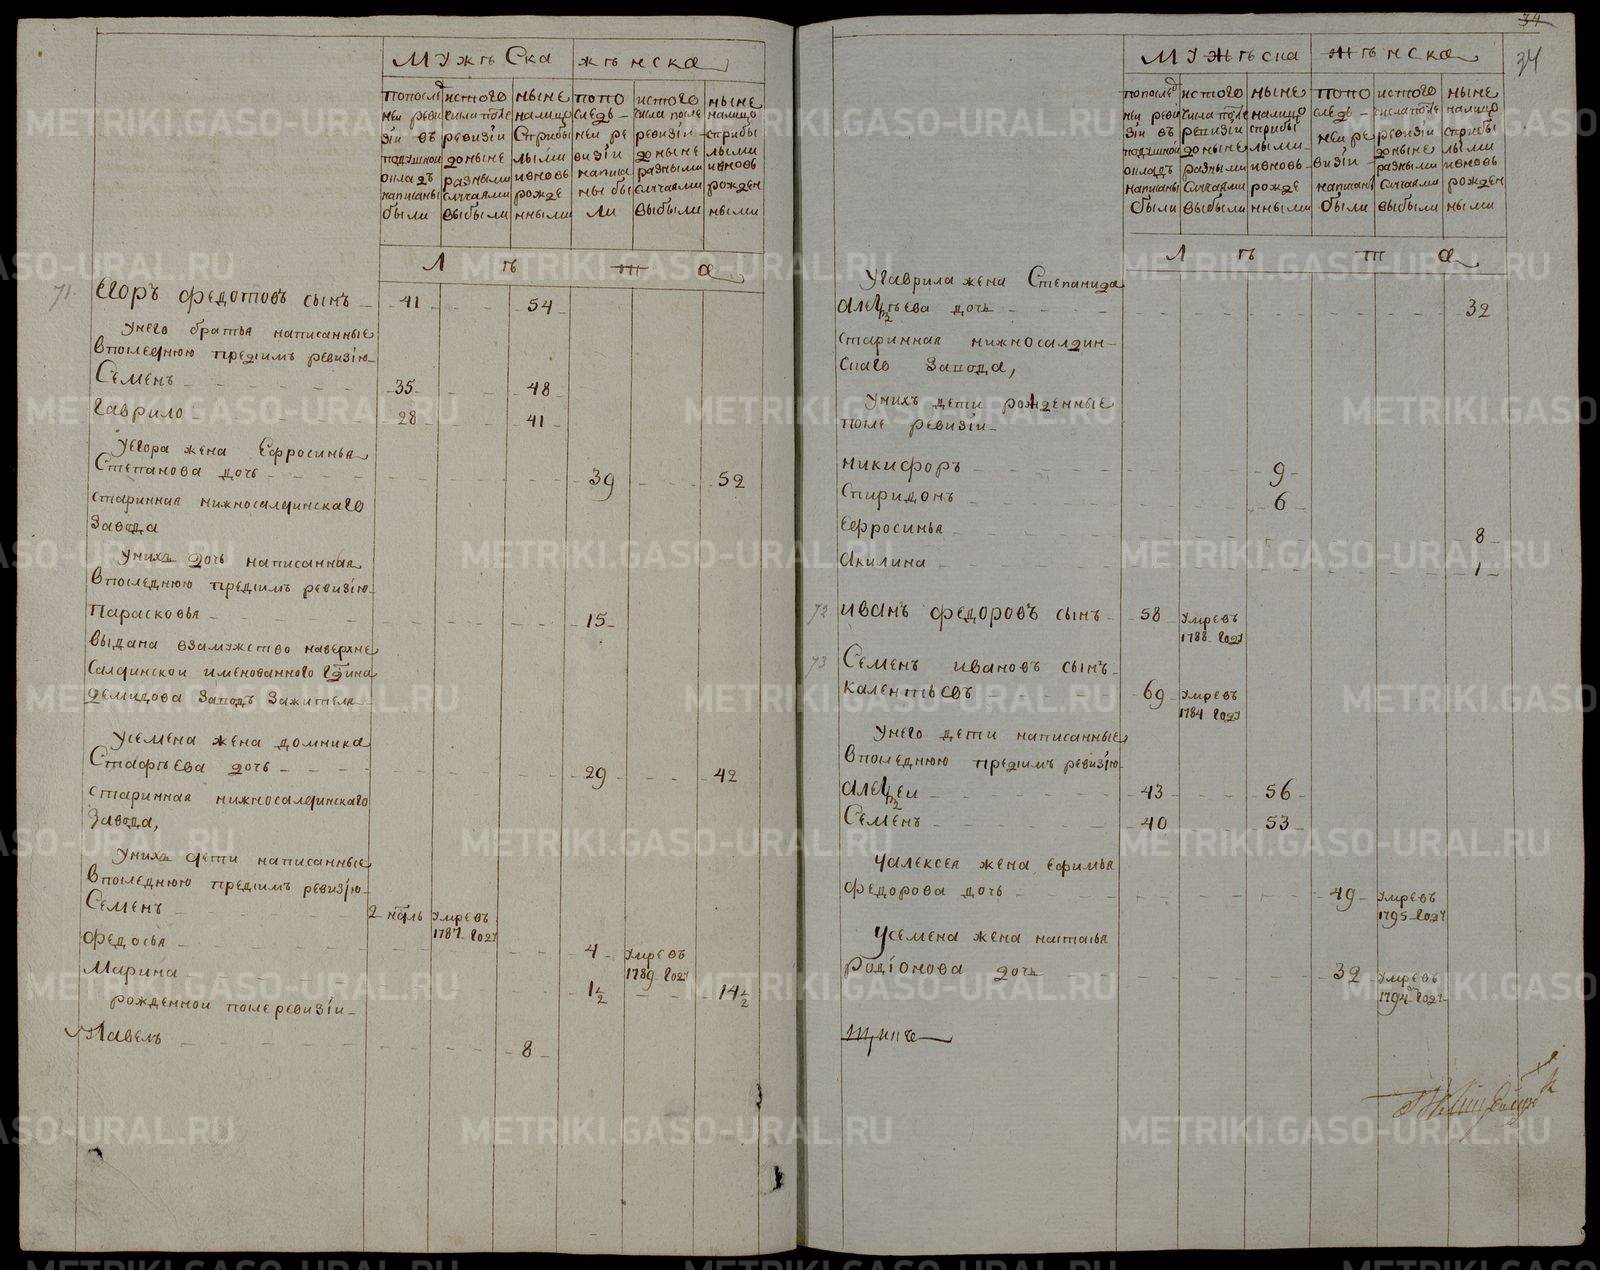 Мужъ Ска жѣнска
попослѣд
ней реви
зіи въ
подушной
окладъ
написаны
были
истого
числа после
ревизіи
доныне
разными
случаями
выбыли
ныне
налицо
сприбы
лыми
ивновь
рожде
нными
попо
следь
ней ре
визіи
написа
ны бы
ли
истого
числа после
ревизіи
доныне
разными
случаями
выбыли
ныне
налицо
сприбы
лыми
ивновь
рожден
ными
Л ѣ т а
71. Егоръ федотовъ сынъ 41 54
Унего братья написанные
впоследнюю предсимъ ревизію
Семенъ 35 48
гаврило 28 41
Уегора жена Ефросинья
Степанова дочь 39 52
старинная нижносалдинскаго
завода
Унихъ дочь написанная
впоследнюю предсимъ ревизію
Парасковья 15
выдана взамужство наверхне
салдинской именованного Гдина
демидова заводъ зажителя
Усемена жена домника
Стафѣева дочь 29 42
старинная нижносалдинскаго
завода,
Унихъ дети написанные
впоследнюю предсимъ ревизію
Семенъ 2 умревъ
1787 году
федосья 4 умревъ
1789 году
Марина 1½ 14½
рожденной после ревизіи
Павелъ 8
34
34
Мужѣска жѣнска
попослед
ней реви
зіи въ
подушной
окладъ
написаны
были
истого
числа после
ревизіи
доныне
разными
случаями
выбыли
ныне
налицо
сприбы
лыми
ивновь
рожде
нными
попо
следь
ней ре
визіи
написаны
были
истого
числа после
ревизіи
доныне
разными
случаями
выбыли
ныне
налицо
сприбы
лыми
ивновь
рожден
ными
Л ѣ т а
Угаврила жена Степанида
алекѣева дочь 32
старинная нижносалдин-
скаго завода,
Унихъ дети рожденные
после ревизіи
никифоръ 9
Спиридонъ 6
Ефросинья 8
акилина 1
72 иванъ федоровъ сынъ 58 умревъ
1788 году
73 Семенъ ивановъ сынъ
калентьевъ 69 умревъ
1784 году
Унего дети написанные
впоследнюю предсимъ ревизію
алекѣи 43 56
Семенъ 40 53
Уалексея жена ефимья
федорова дочь 49 умревъ
1795 году
Усемена жена настасья
родіонова дочь 32 умревъ
1794 году
METRIKI.GASO-URAL.RU